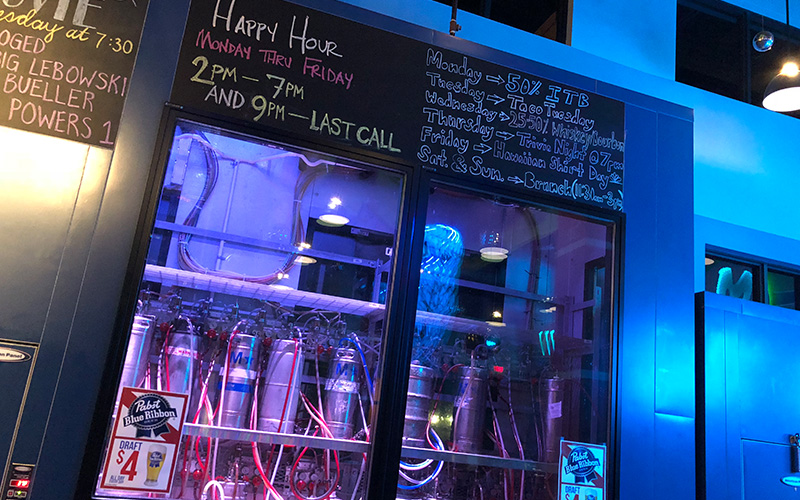 esday at 7:30
OGED
BIG LEBOWSKI
BUELLER
POWERS 1
HAPPY HOUR
MONDAY THRU FRIDAY
2PM — 7PM
AND 9PM — LAST CALL
Monday → 50% ITB
Tuesday → Taco Tuesday
Wednesday → 25-50% Whiskey/Bourbon
Thursday → Trivia Night @ 7pm
Friday → Hawaiian Shirt Day
Sat & Sun. → Brunch
Pabst
Blue Ribbon
DRAFT
$4
Pabst
Blue Ribbon
DRAFT